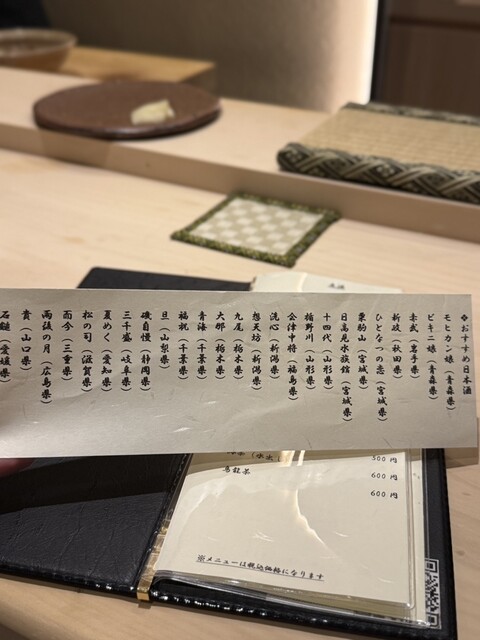 ❖おすすめ日本酒
モヒカン娘（青森県）
ビキニ娘（青森県）
赤武（岩手県）
新政（秋田県）
ひと夏の恋（宮城県）
栗駒山（宮城県）
日高見水族館（宮城県）
十四代（山形県）
楯野川（山形県）
会津中将（福島県）
洗心（新潟県）
想天坊（新潟県）
九尾（栃木県）
大那（栃木県）
青海（千葉県）
福祝（千葉県）
旦（山梨県）
磯自慢（静岡県）
三千盛（岐阜県）
夏めく（愛知県）
松の司（滋賀県）
而今（三重県）
雨後の月（広島県）
貴（山口県）
石鎚（愛媛県）
500円
烏龍茶
600円
600円
※メニューは税込価格になります